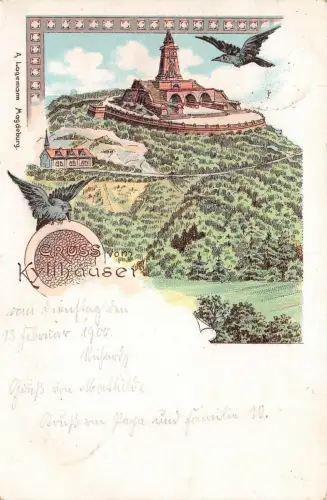 A. Lagemann Magdeburg.
GRUSS vom
Kyffhäuser!
vom Dienstag den
13 Februar 1900.
Richard
Gruß von Mathilde
Gruß von Papa und Familie W.